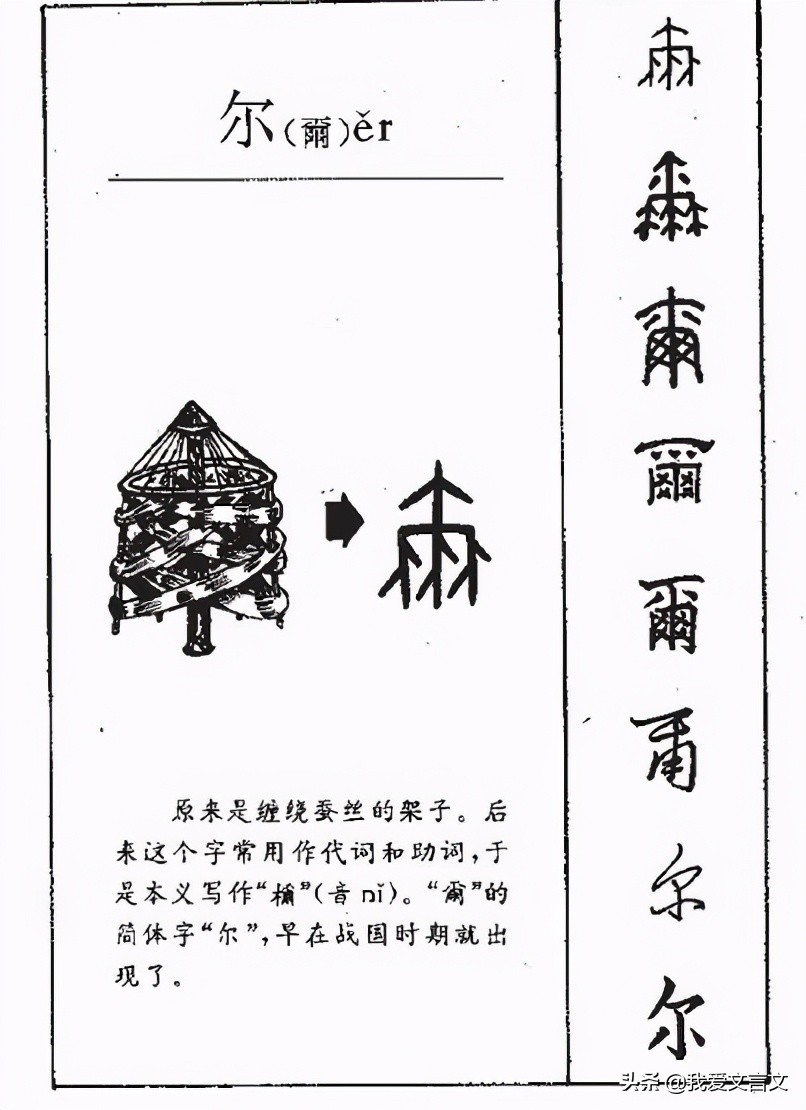 尔(爾)ěr
原来是缠绕蚕丝的架子。后
来这个字常用作代词和助词,于
是本义写作“檷”(音nǐ)。“爾”的
简体字“尔”,早在战国时期就出
现了。
爾
爾
尔
尔
头条 @我爱文言文